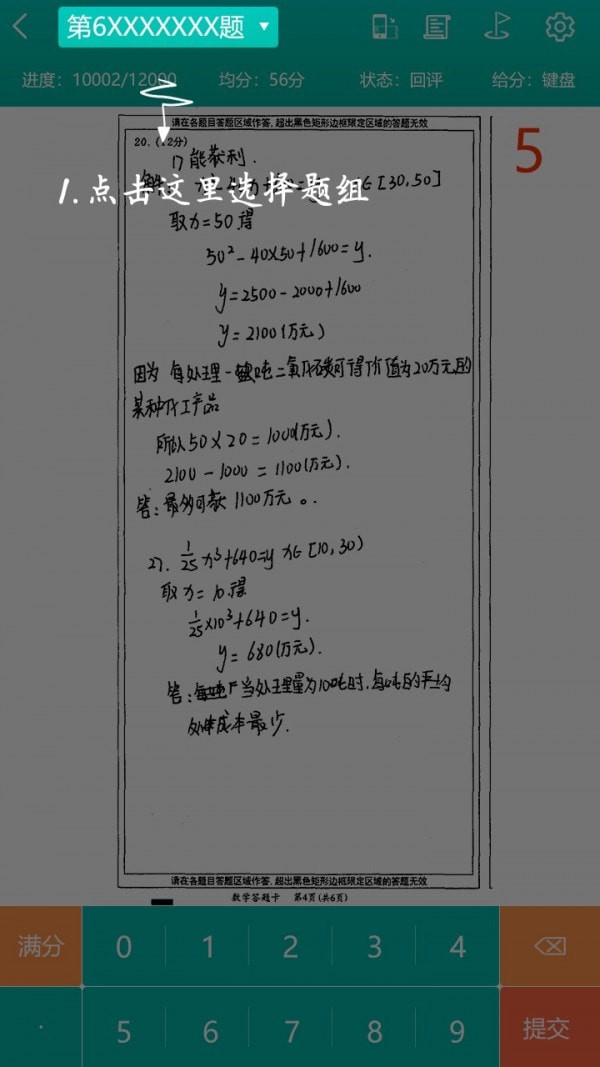 第6XXXXXXX题
进度：10002/12000 均分：56分 状态：回评 给分：键盘
请在各题目答题区域作答，超出黑色矩形边框限定区域的答题无效
5
20.（12分）
1.点击这里选择题组
能获利．
[30,50]
取x=50.得
50²-40×50+1600=y.
y=2500-2000+1600
y=2100(万元)
因为 每处理一吨二氧化碳可得价值为20万元的
某种化工产品
所以50×20=1000(万元).
2100-1000=1100(万元).
答：最多可获 1100万元 。
2). 1/25 x³+640=y x∈[10,30)
取x=10.得
1/25×10³+640=y.
y=680(万元).
答： 当处理量为10吨时，每吨的平均
处理成本最少．
请在各题目答题区域作答，超出黑色矩形边框限定区域的答题无效
数学答题卡 第4页(共6页)
满分 0 1 2 3 4
· 5 6 7 8 9 提交